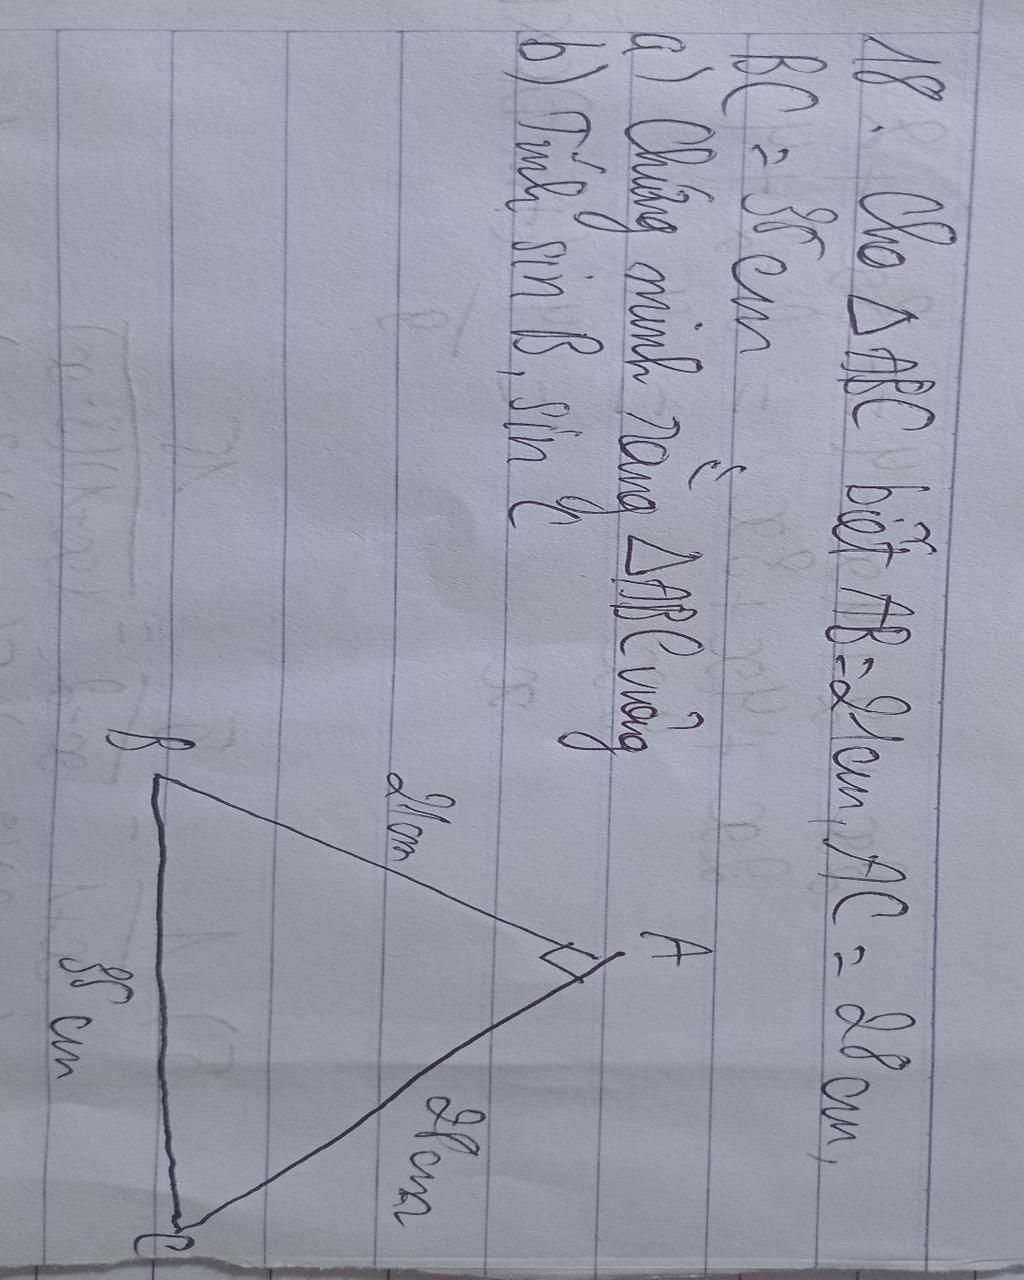 18. Cho ΔABC biết AB=21cm, AC = 28cm,
BC = 35cm
a) Chứng minh rằng ΔABC vuông
b) Tính sin B, sin C
A
21cm
28cm
B
C
35 cm